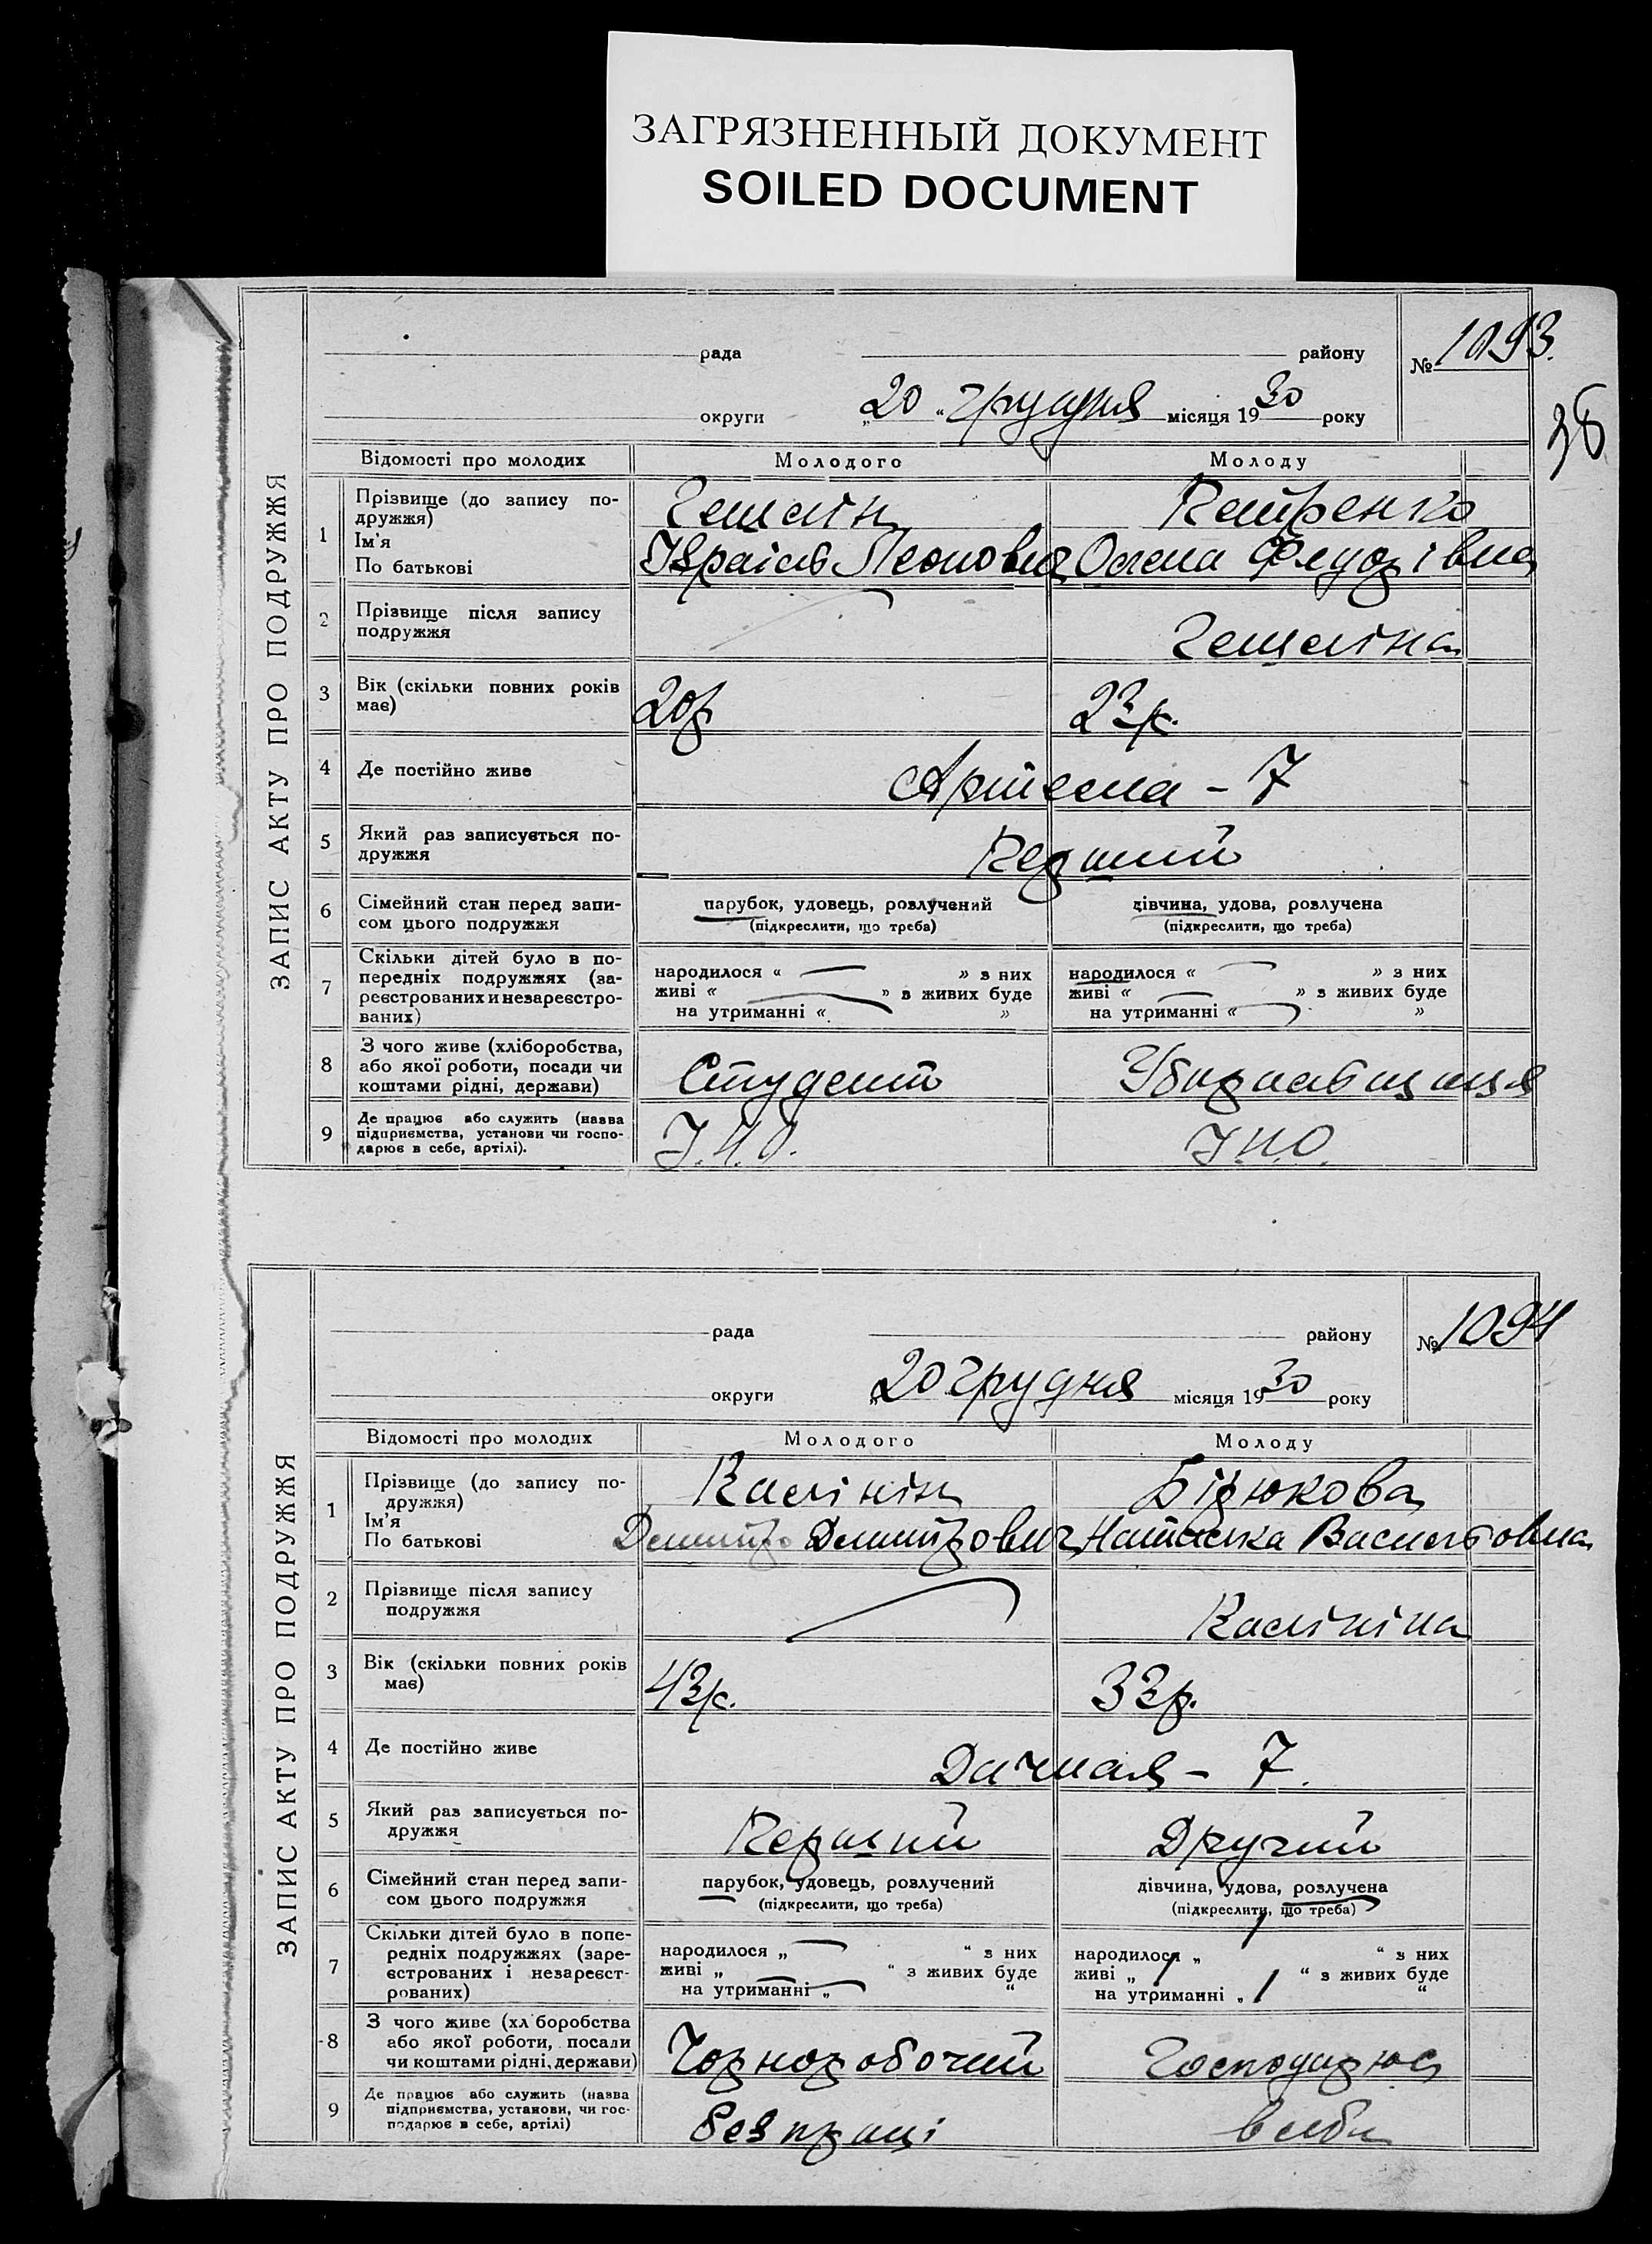 ЗАГРЯЗНЕННЫЙ ДОКУМЕНТ
SOILED DOCUMENT
ЗАПИС АКТУ ПРО ПОДРУЖЖЯ
рада району № 1093.
округи „20 “ грудня місяця 1930 року
38
Відомості про молодих Молодого Молоду
1 Прізвище (до запису по-
дружжя)
Ім'я
По батькові
Гешелін
Олена
2 Прізвище після запису
подружжя
Гешеліна
3 Вік (скільки повних років
має)
20р 23р.
4 Де постійно живе
Артема - 7
5 Який раз записується по-
дружжя
Перший
6 Сімейний стан перед запи-
сом цього подружжя
парубок, удовець, розлучений
(підкреслити, що треба)
дівчина, удова, розлучена
(підкреслити, що треба)
7 Скільки дітей було в по-
передніх подружжях (за-
реєстрованих и незареєстро-
ваних)
народилося « » з них
живі « » з живих буде
на утриманні « »
народилося « » з них
живі « » з живих буде
на утриманні « »
8 З чого живе (хліборобства,
або якої роботи, посади чи
коштами рідні, держави)
Студент
9 Де працює або служить (назва
підприємства, установи чи госпо-
дарює в себе, артілі).
І.Н.О. І.Н.О.
ЗАПИС АКТУ ПРО ПОДРУЖЖЯ
рада району № 1094
округи „20 грудня місяця 1930 року
Відомості про молодих Молодого Молоду
1 Прізвище (до запису по-
дружжя)
Ім'я
По батькові
Калінін Бірюкова
Дмитро Дмитрович Наталка Василівна
2 Прізвище після запису
подружжя
Калініна
3 Вік (скільки повних років
має)
43р. 33р.
4 Де постійно живе
Дачная - 7.
5 Який раз записується по-
дружжя
Перший Другий
6 Сімейний стан перед запи-
сом цього подружжя
парубок, удовець, розлучений
(підкреслити, що треба)
дівчина, удова, розлучена
(підкреслити, що треба)
7 Скільки дітей було в попе-
редніх подружжях (заре-
єстрованих і незареєст-
рованих)
народилося „ “ з них
живі „ “ з живих буде
на утриманні „ “
народилося „ 1 “ з них
живі „ 1 “ з живих буде
на утриманні „ 1 “
8 З чого живе (хл боробства
або якої роботи, посади
чи коштами рідні, держави)
Чорноробочий Господарює
9 Де працює або служить (назва
підприємства, установи, чи гос-
подарює в себе, артілі)
без праці в себе